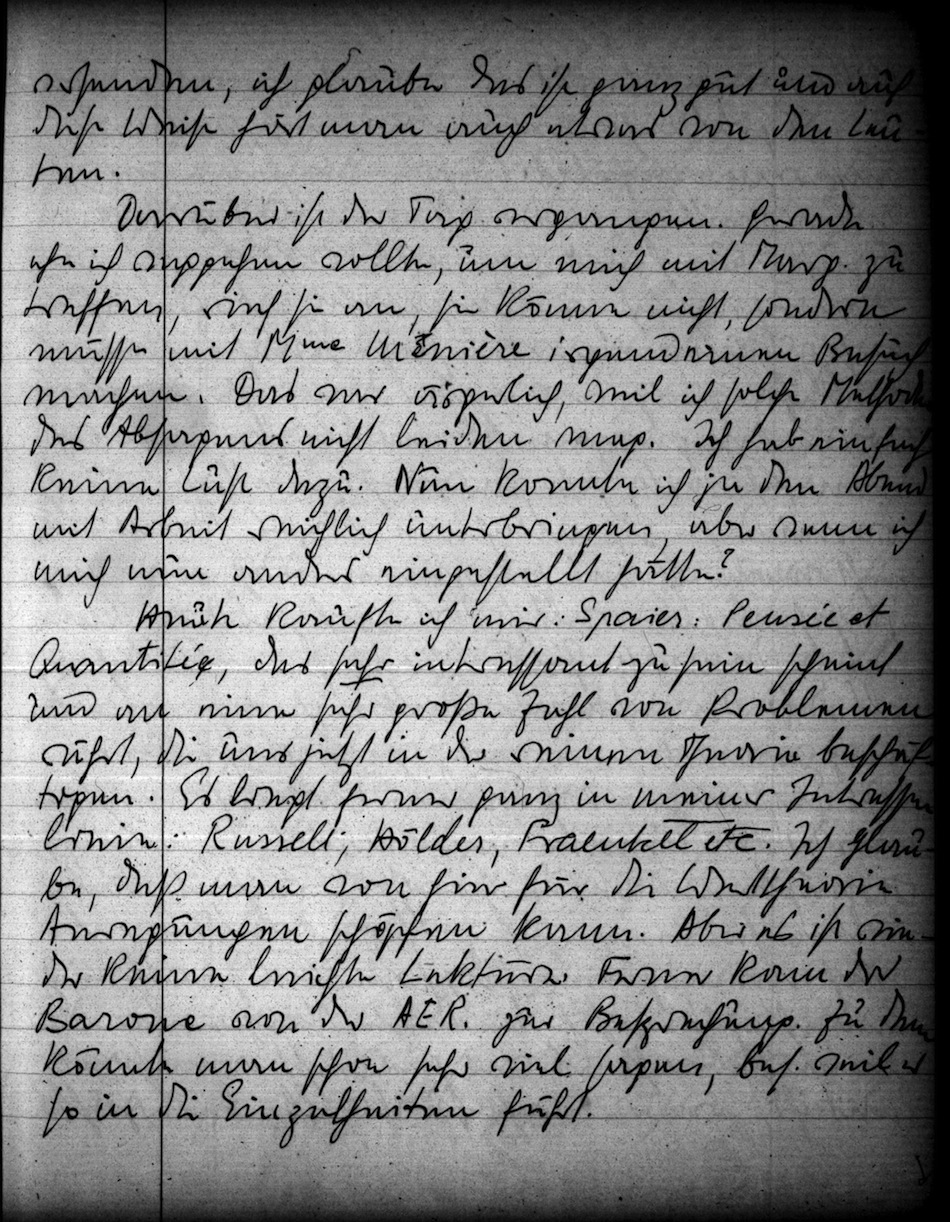 wenden, ich glaube das ist ganz gut und auf
diese Weise hört man auch etwas von den Leu-
ten.
Darüber ist der Tag vergangen. Gerade
ehe ich weggehen wollte, um mich mit Marg. zu
treffen, rief sie an, sie könne nicht, sondern
müsse mit Mme Ménière irgendeinen Besuch
machen. Das war ärgerlich, weil ich solche Methode
des Absagens nicht leiden mag. Ich hab einfach
keine Lust dazu. Nun konnte ich ja den Abend
mit Arbeit reichlich unterbringen, aber wenn ich
mich nun anders eingestellt hätte?
Heute kaufte ich mir: Spaier: Pensée et
Quantité, das sehr interessant zu sein scheint
und an eine sehr große Zahl von Problemen
rührt, die uns jetzt in der reinen Theorie beschäf-
tigen. Es liegt ferner ganz in meiner Interessen
linie: Russell, Hölder, Fraenkel etc. Ich glau-
be, daß man von hier für die Werttheorie
Anregungen schöpfen kann. Aber es ist wie-
der keine leichte Lektüre. Ferner kam der
Barone von der AER. zur Besprechung. Zu dem
könnte man schon sehr viel sagen, bes. weil er
so in die Einzelheiten führt.